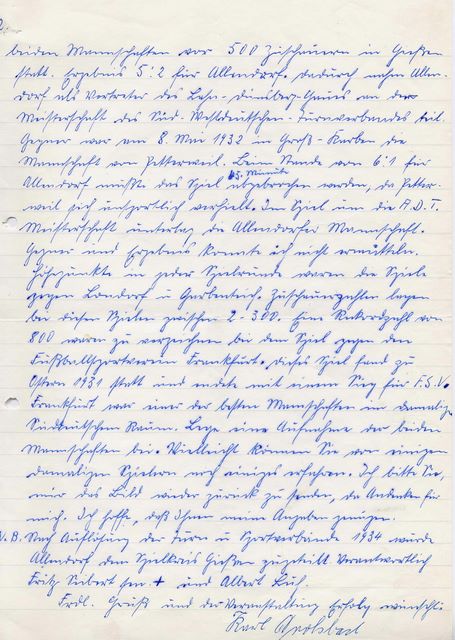 2
beiden Mannschaften vor 500 Zuschauern in Gießen
statt. Ergebnis 5:2 für Allendorf. Dadurch nahm Allen-
dorf als Vertreter des Lahn-Dünsberg-Gaues an der
Meisterschaft des Süd-Westdeutschen-Turnverbandes teil.
Gegner war am 8. Mai 1932 in Groß-Karben die
Mannschaft von Petterweil. Beim Stande von 6:1 für
Allendorf mußte das Spiel Minute abgebrochen werden, da Petter-
weil sich unsportlich verhielt. Im Spiel um die A.D.T.
Meisterschaft unterlag die Allendorfer Mannschaft.
Gegner und Ergebnis konnte ich nicht ermitteln.
Höhepunkte in jeder Spielrunde waren die Spiele
gegen Londorf u Garbenteich. Zuschauerzahlen lagen
bei diesen Spielen zwischen 2-300. Eine Rekordzahl von
800 waren zu verzeichnen bei dem Spiel gegen den
Fußballsportverein Frankfurt. Dieses Spiel fand zu
Ostern 1931 statt und endete mit einem Sieg für F.S.V.
Frankfurt war einer der besten Mannschaften im damalig.
Süddeutschen Raum. Lege eine Aufnahme der beiden
Mannschaften bei. Vielleicht können Sie von einigen
damaligen Spielern noch einiges erfahren. Ich bitte Sie,
mir das Bild wieder zurück zu senden, da Andenken für
mich. Ich hoffe, daß Ihnen meine Angaben genügen.
N.B. Nach Auflösung der Turn u Sportverbände 1934 wurde
Allendorf dem Spielkreis Gießen zugeteilt. Verantwortlich
Fritz Seibert sen. + und Albert
Frdl. Gruß und der Veranstaltung Erfolg wünscht.
Karl